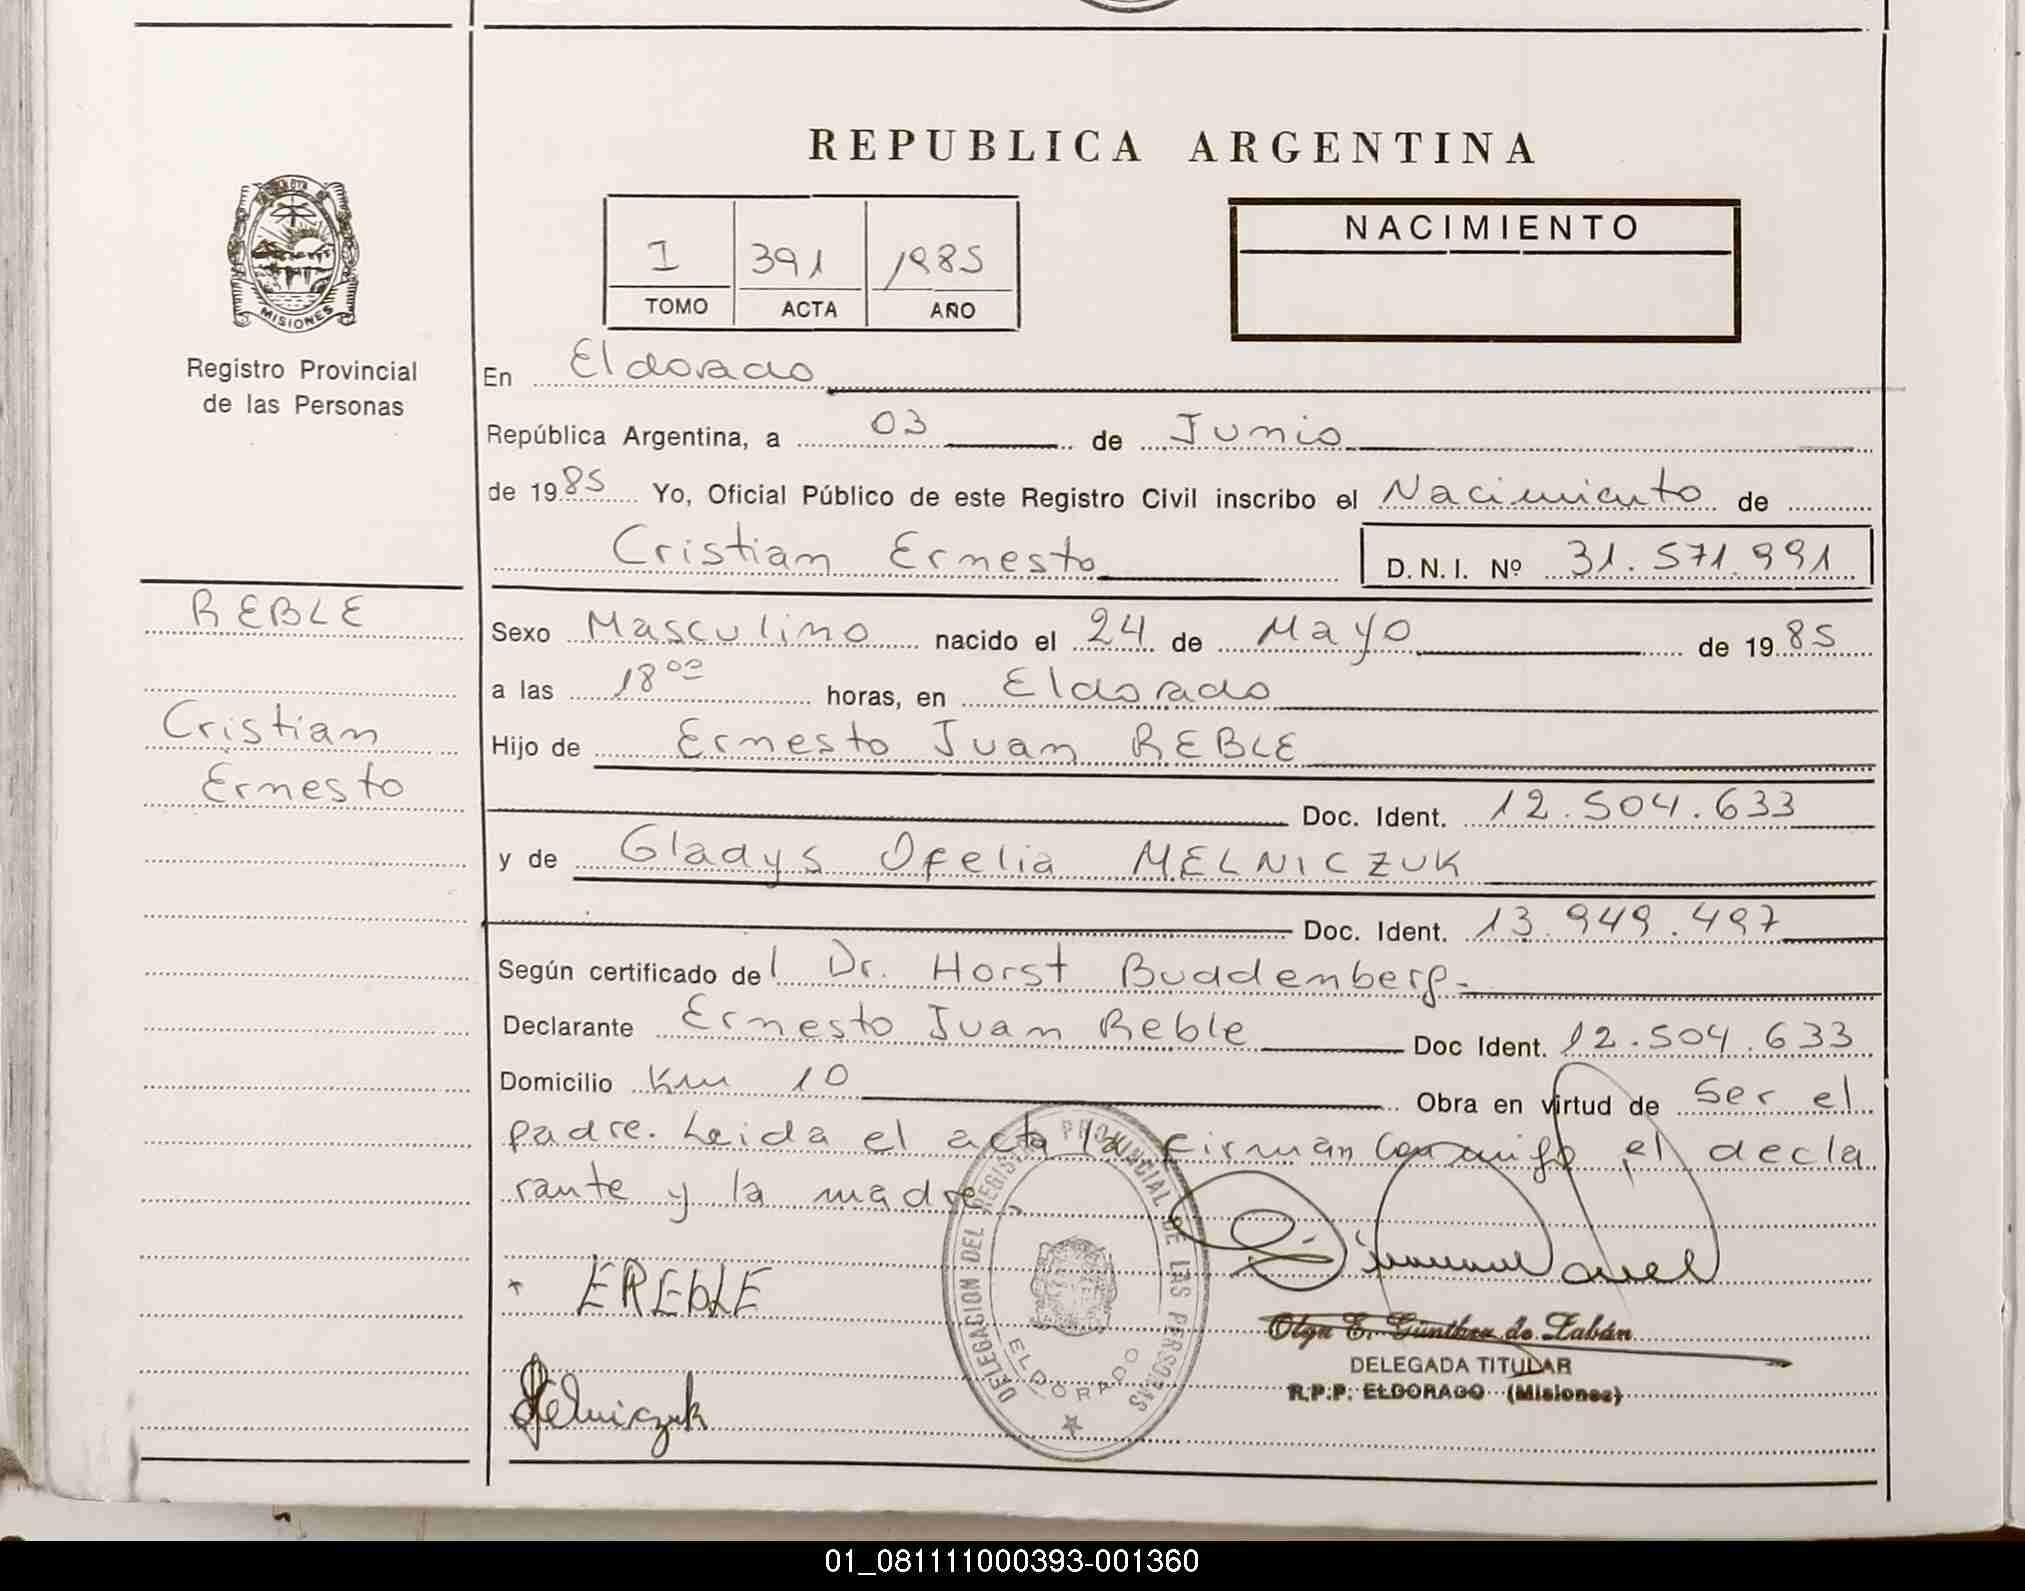 REPUBLICA ARGENTINA
I 391 1985
TOMO ACTA AÑO
NACIMIENTO
MISIONES
Registro Provincial
de las Personas
REBLE
Cristian
Ernesto
En Eldorado
República Argentina, a 03 de Junio
de 1985 Yo, Oficial Público de este Registro Civil inscribo el Nacimiento de
Cristian Ernesto D.N.I. Nº 31.571.991
Sexo Masculino nacido el 24 de Mayo de 1985
a las 18 00 horas, en Eldorado
Hijo de Ernesto Juan REBLE
Doc. Ident. 12.504.633
y de Gladys Ofelia MELNICZUK
Doc. Ident. 13.949.497
Según certificado del Dr. Horst Buddenberg.-
Declarante Ernesto Juan Reble Doc Ident. 12.504.633
Domicilio Km 10 Obra en virtud de ser el
padre. Leida el acta la firman conmigo el decla
rante y la madre,
EREbLE
Melniczuk
DELEGACION DEL REGISTRO PROVINCIAL DE LAS PERSONAS
ELDORADO
Olga E. Günther de Zabán
DELEGADA TITULAR
R.P.P. ELDORADO (Misiones)
01_081111000393-001360